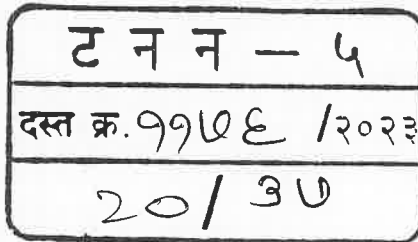 ट न न — ५
दस्त क्र. ११७६ /२०२३
२०/ ३७